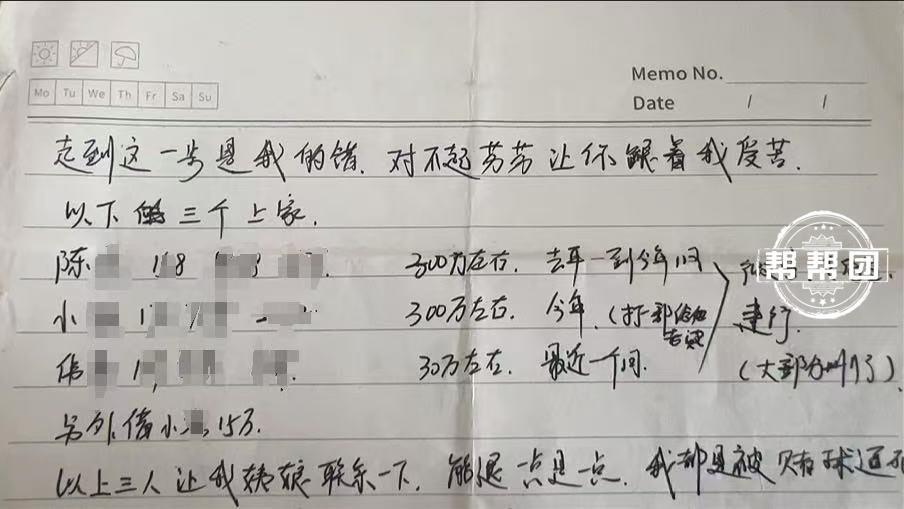 Memo No.
Mo Tu We Th Fr Sa Su
Date / /
走到这一步是我的错. 对不起芳芳让你跟着我受苦.
以下的三个上家.
陈 300万左右. 去年一到今年间
小 300万左右. 今年.
伟 30万左右. 最近一个间.
建行.
(大部分删了)
另外借小 15万.
以上三人让我姨娘联系一下. 能退一点是一点. 我都是被赌球逼
帮帮团